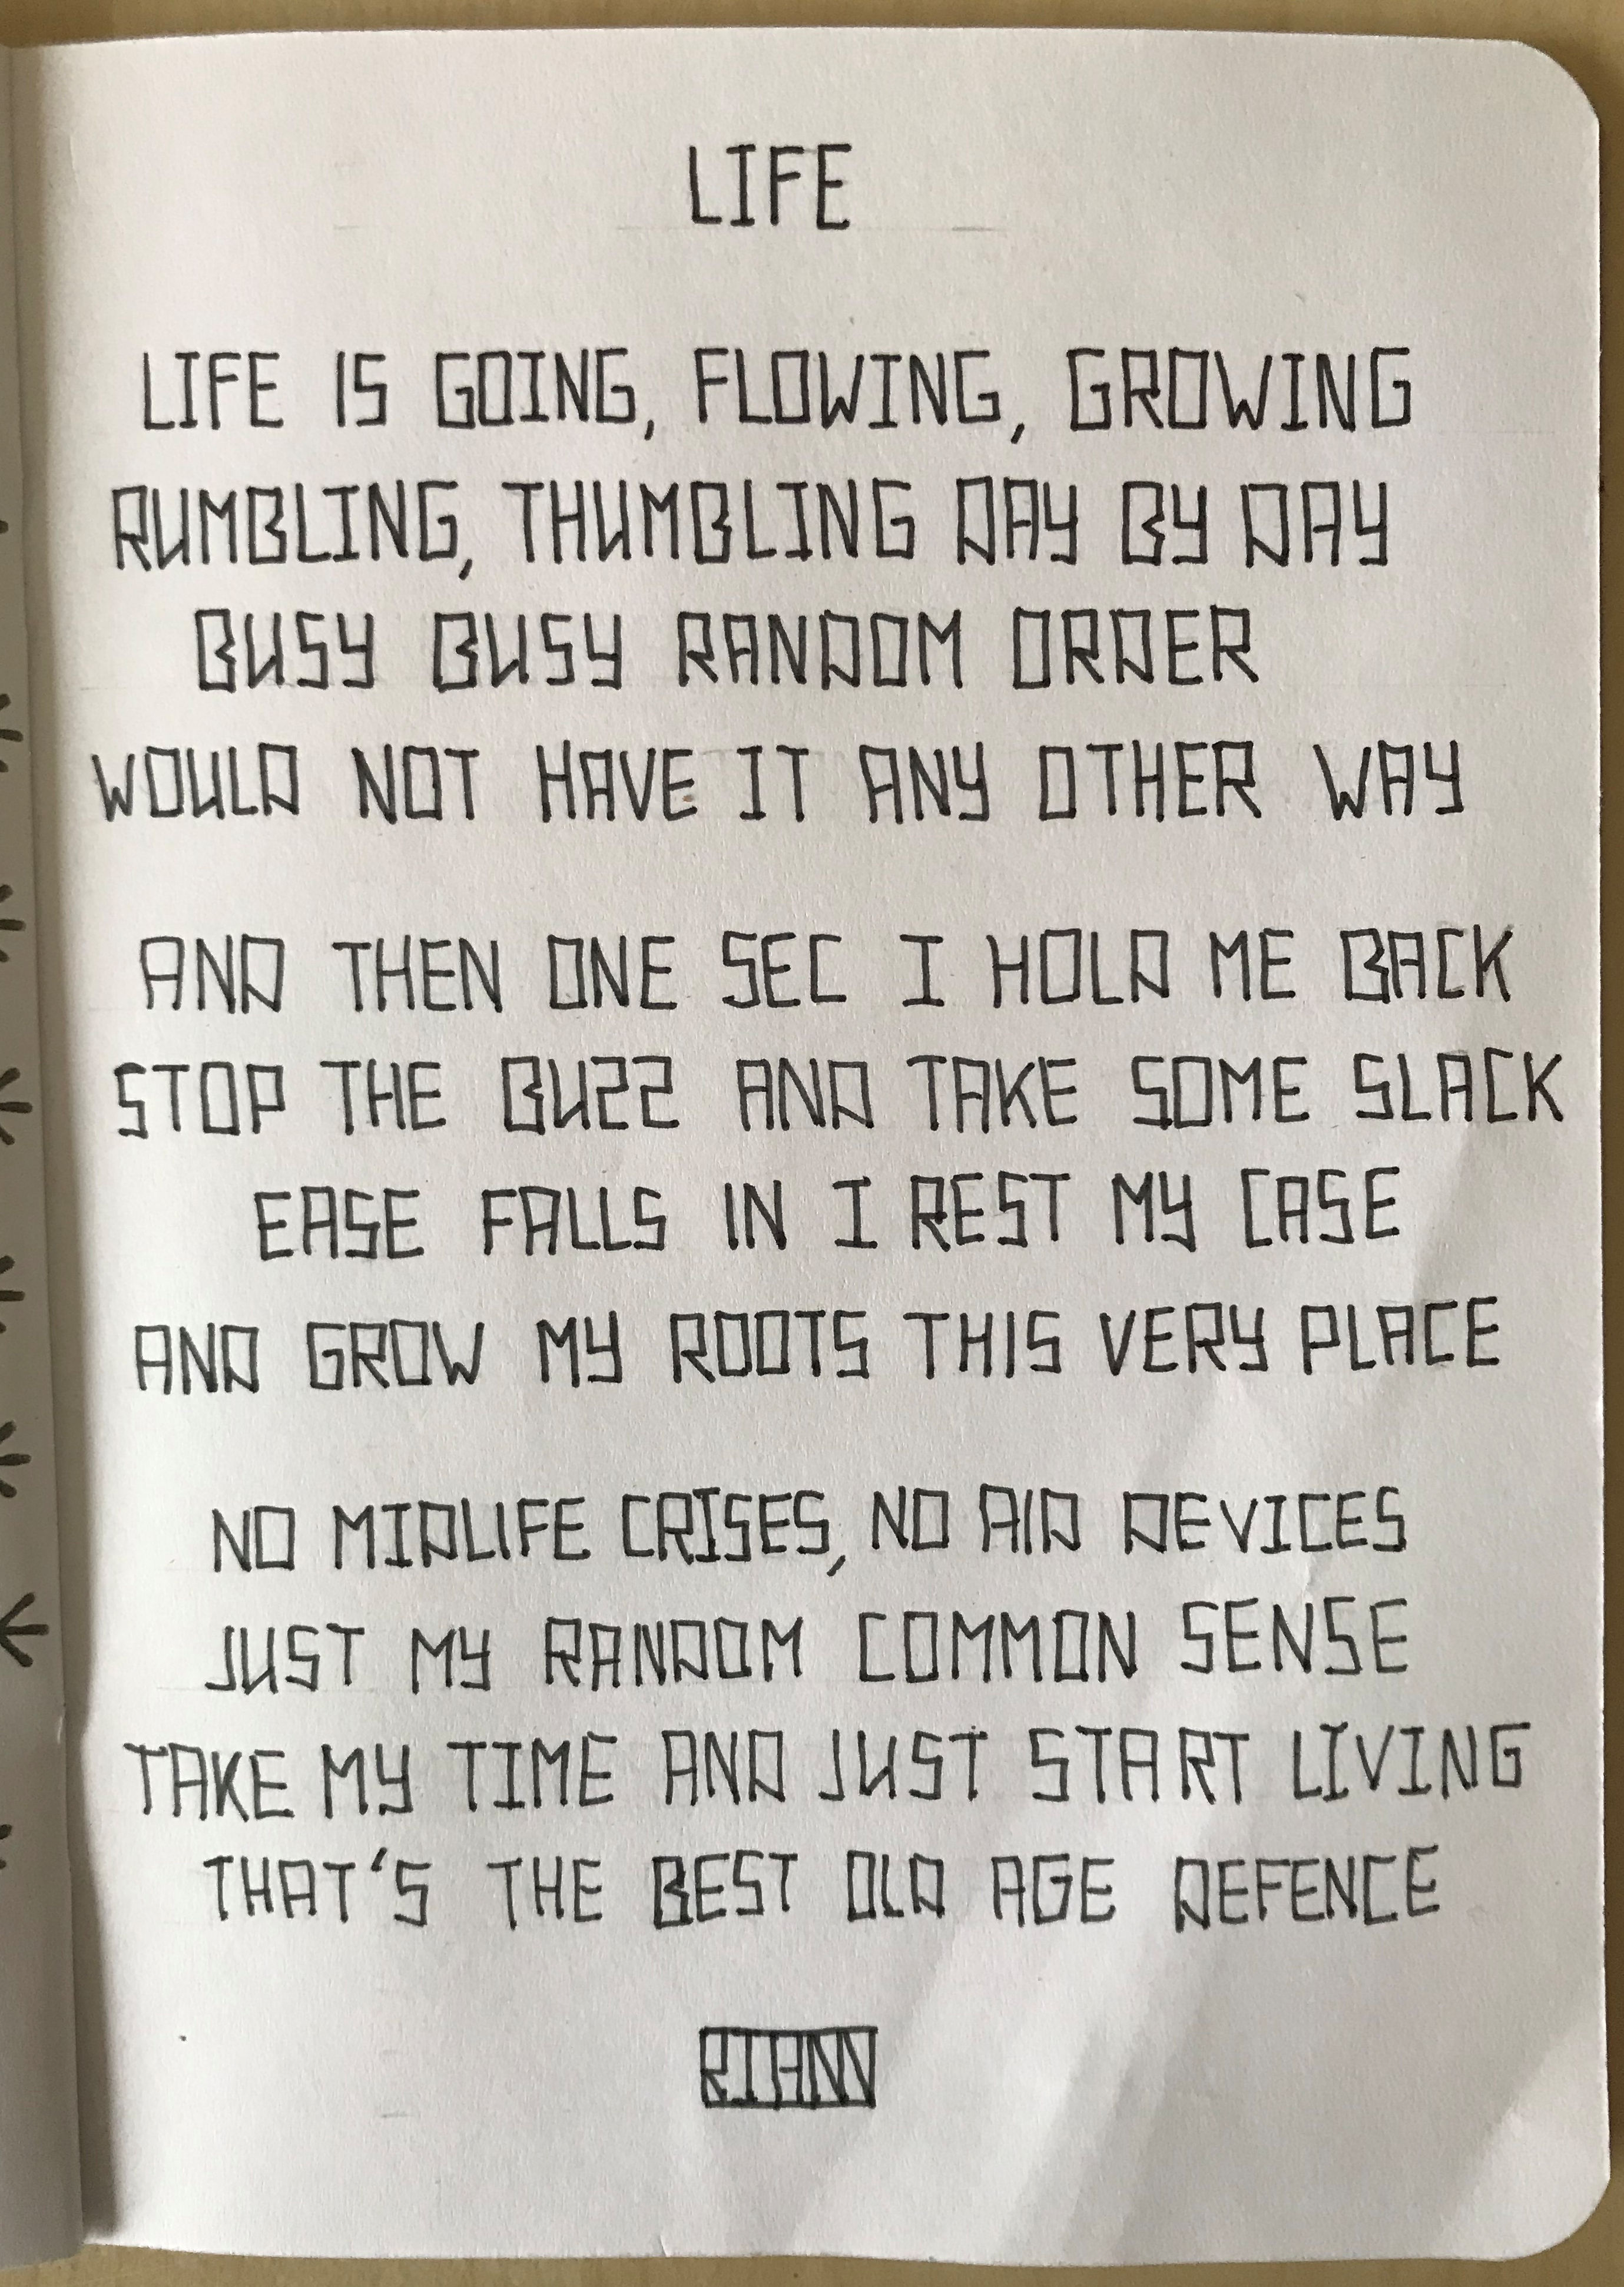 LIFE
LIFE IS GOING, FLOWING, GROWING
RUMBLING, THUMBLING DAY BY DAY
BUSY BUSY RANDOM ORDER
WOULD NOT HAVE IT ANY OTHER WAY
AND THEN ONE SEC I HOLD ME BACK
STOP THE BUZZ AND TAKE SOME SLACK
EASE FALLS IN I REST MY CASE
AND GROW MY ROOTS THIS VERY PLACE
NO MIDLIFE CRISES, NO AID DEVICES
JUST MY RANDOM COMMON SENSE
TAKE MY TIME AND JUST START LIVING
THAT'S THE BEST OLD AGE DEFENCE
RIANN